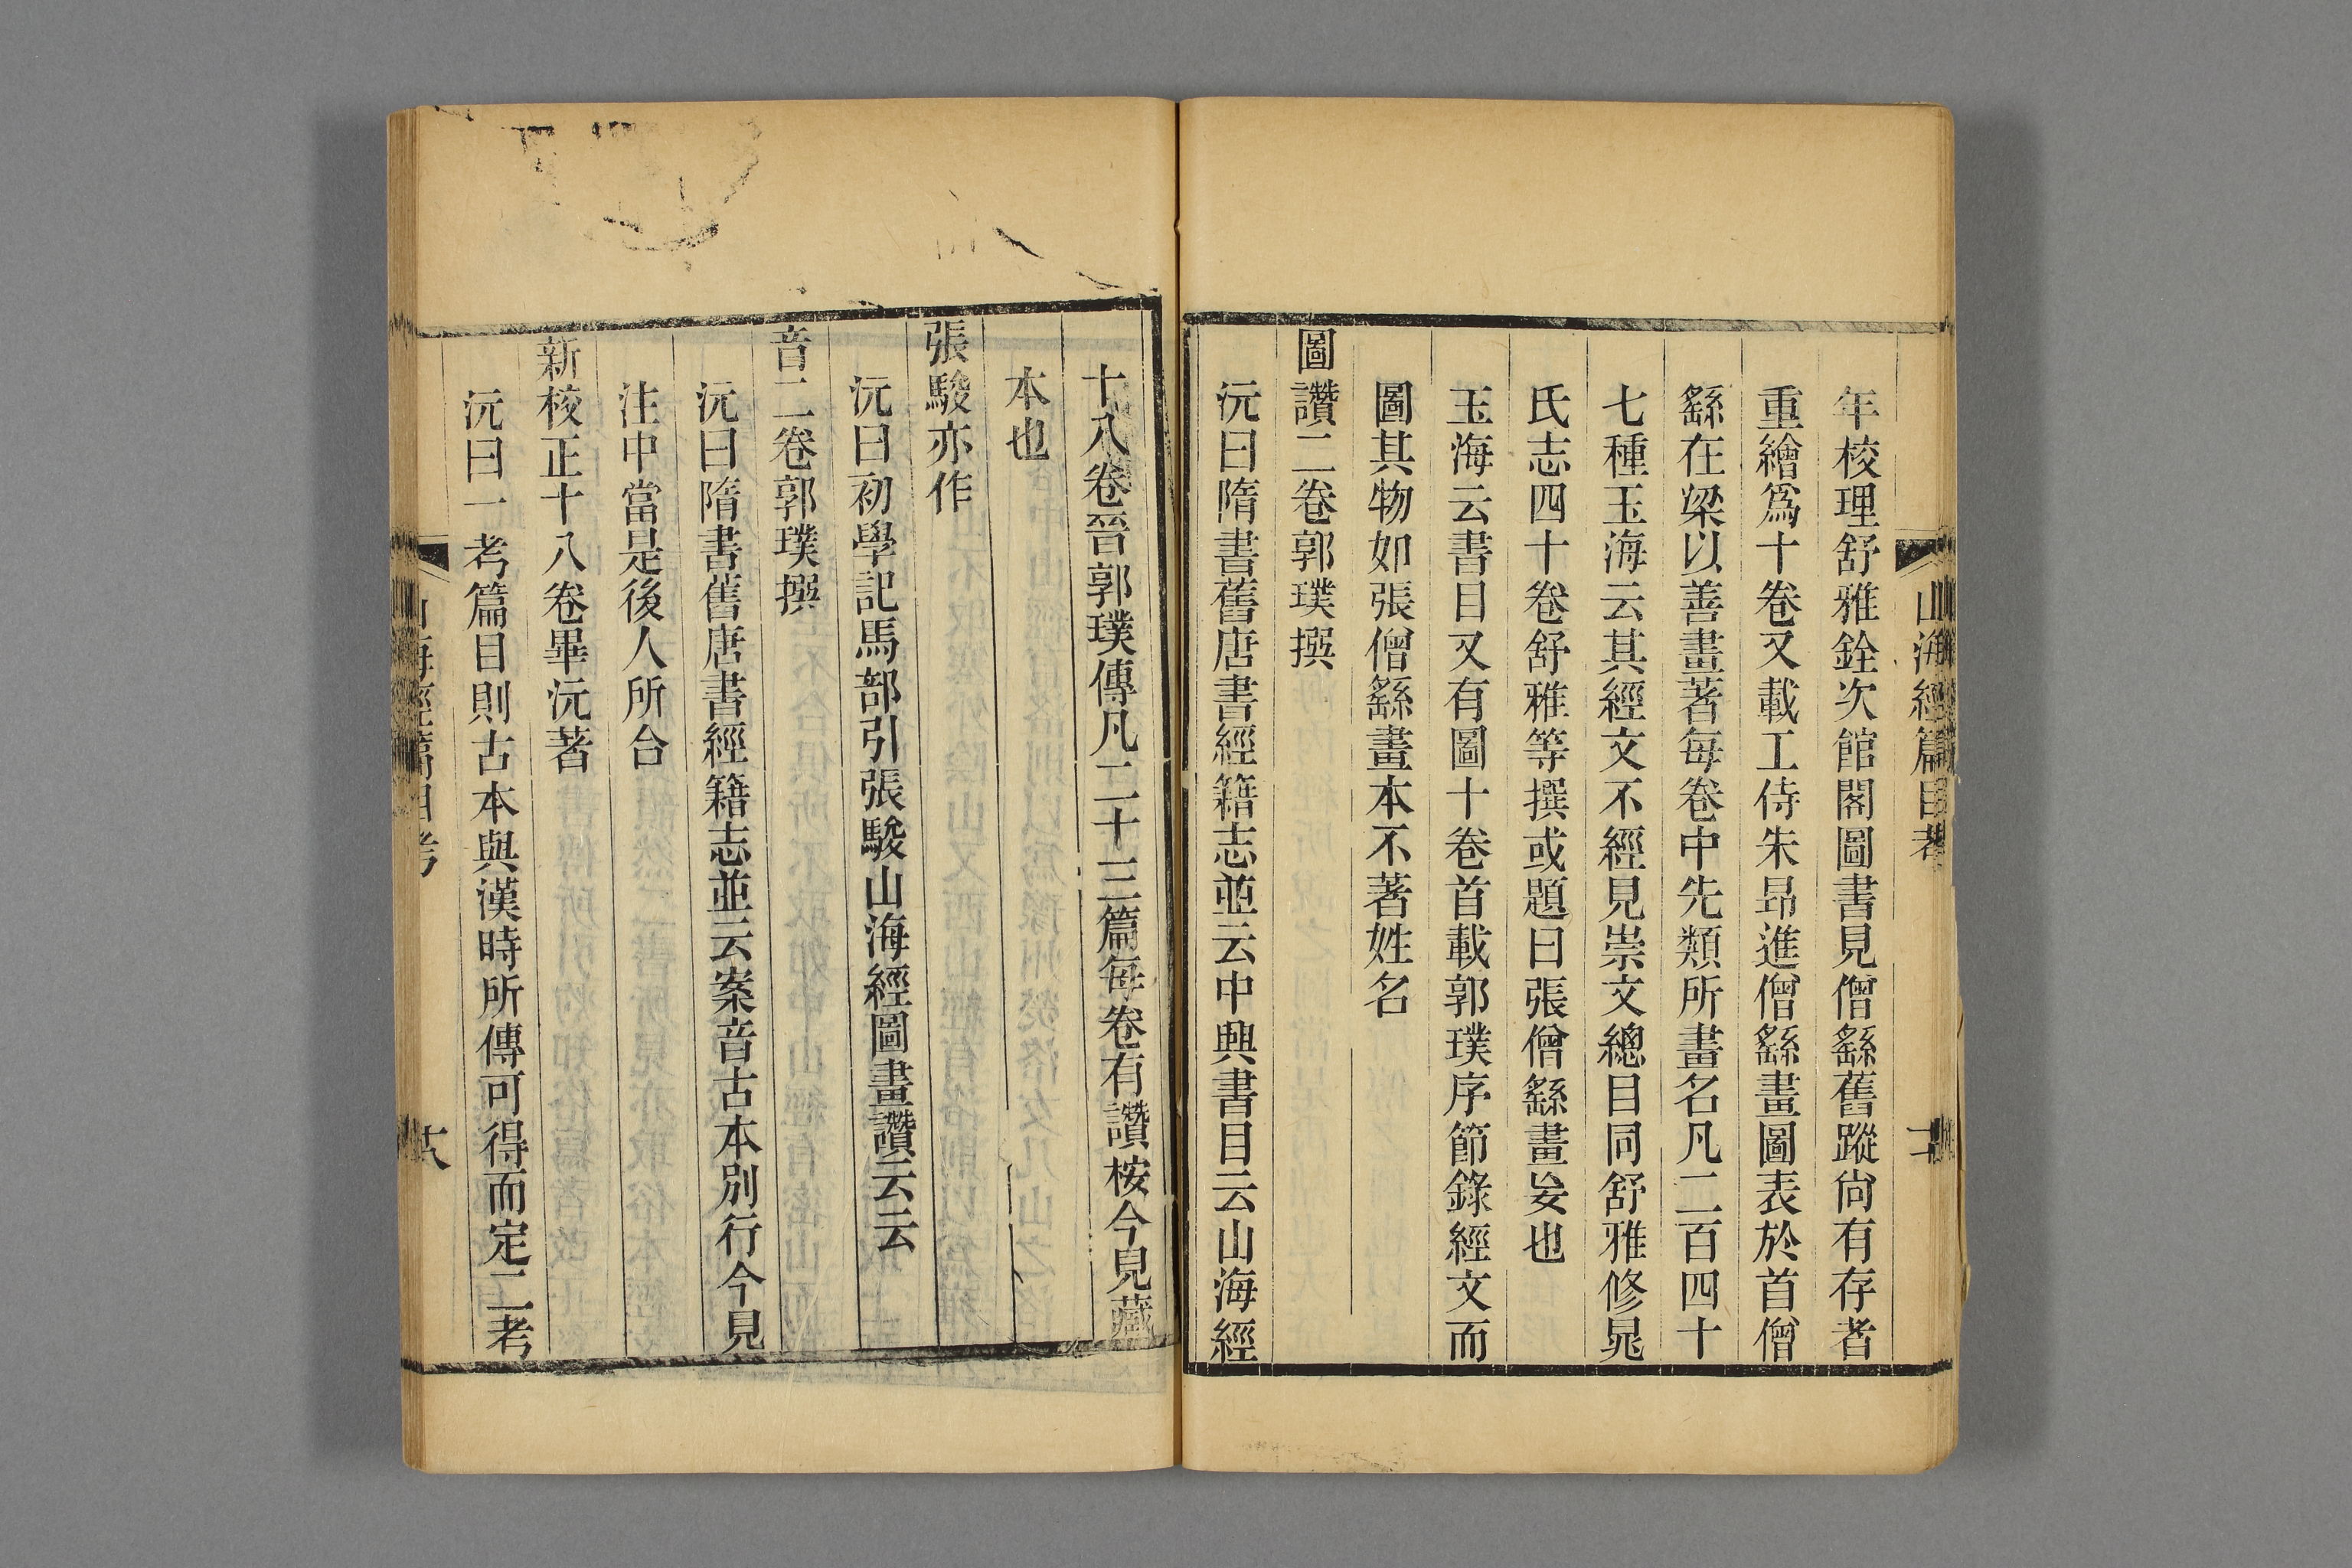 山海經篇目考
年校理舒雅銓次館閣圖書見僧繇舊蹤尙有存者
重繪爲十卷又載工侍朱昻進僧繇畫圖表於首僧
繇在梁以善畫著每卷中先類所畫名凡二百四十
七種玉海云其經文不經見崇文總目同舒雅修晁
氏志四十卷舒雅等撰或題曰張僧繇畫妄也
玉海云書目又有圖十卷首載郭璞序節錄經文而
圖其物如張僧繇畫本不著姓名
圖讚二卷郭璞撰
沅曰隋書舊唐書經籍志並云中興書目云山海經
十八卷晉郭璞傳凡二十三篇每卷有讚桉今見藏
本也
張駿亦作
沅曰初學記馬部引張駿山海經圖畫讚云云
音二卷郭璞撰
沅曰隋書舊唐書經籍志並云案音古本別行今見
注中當是後人所合
新校正十八卷畢沅著
沅曰一考篇目則古本與漢時所傳可得而定二考
山海經篇目考